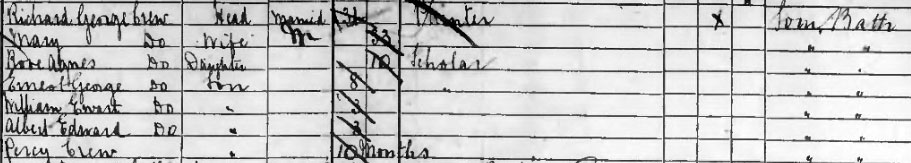 Richard George Crew Head Married 34 Painter X Som. Bath
Mary Do Wife M 33 " "
Rose Agnes Do Daughter 10 Scholar " "
Ernest George Do Son 8 " " "
William Ewart Do " 5 " "
Albert Edward Do " 3 " "
Percy Crew " 10 Months " "